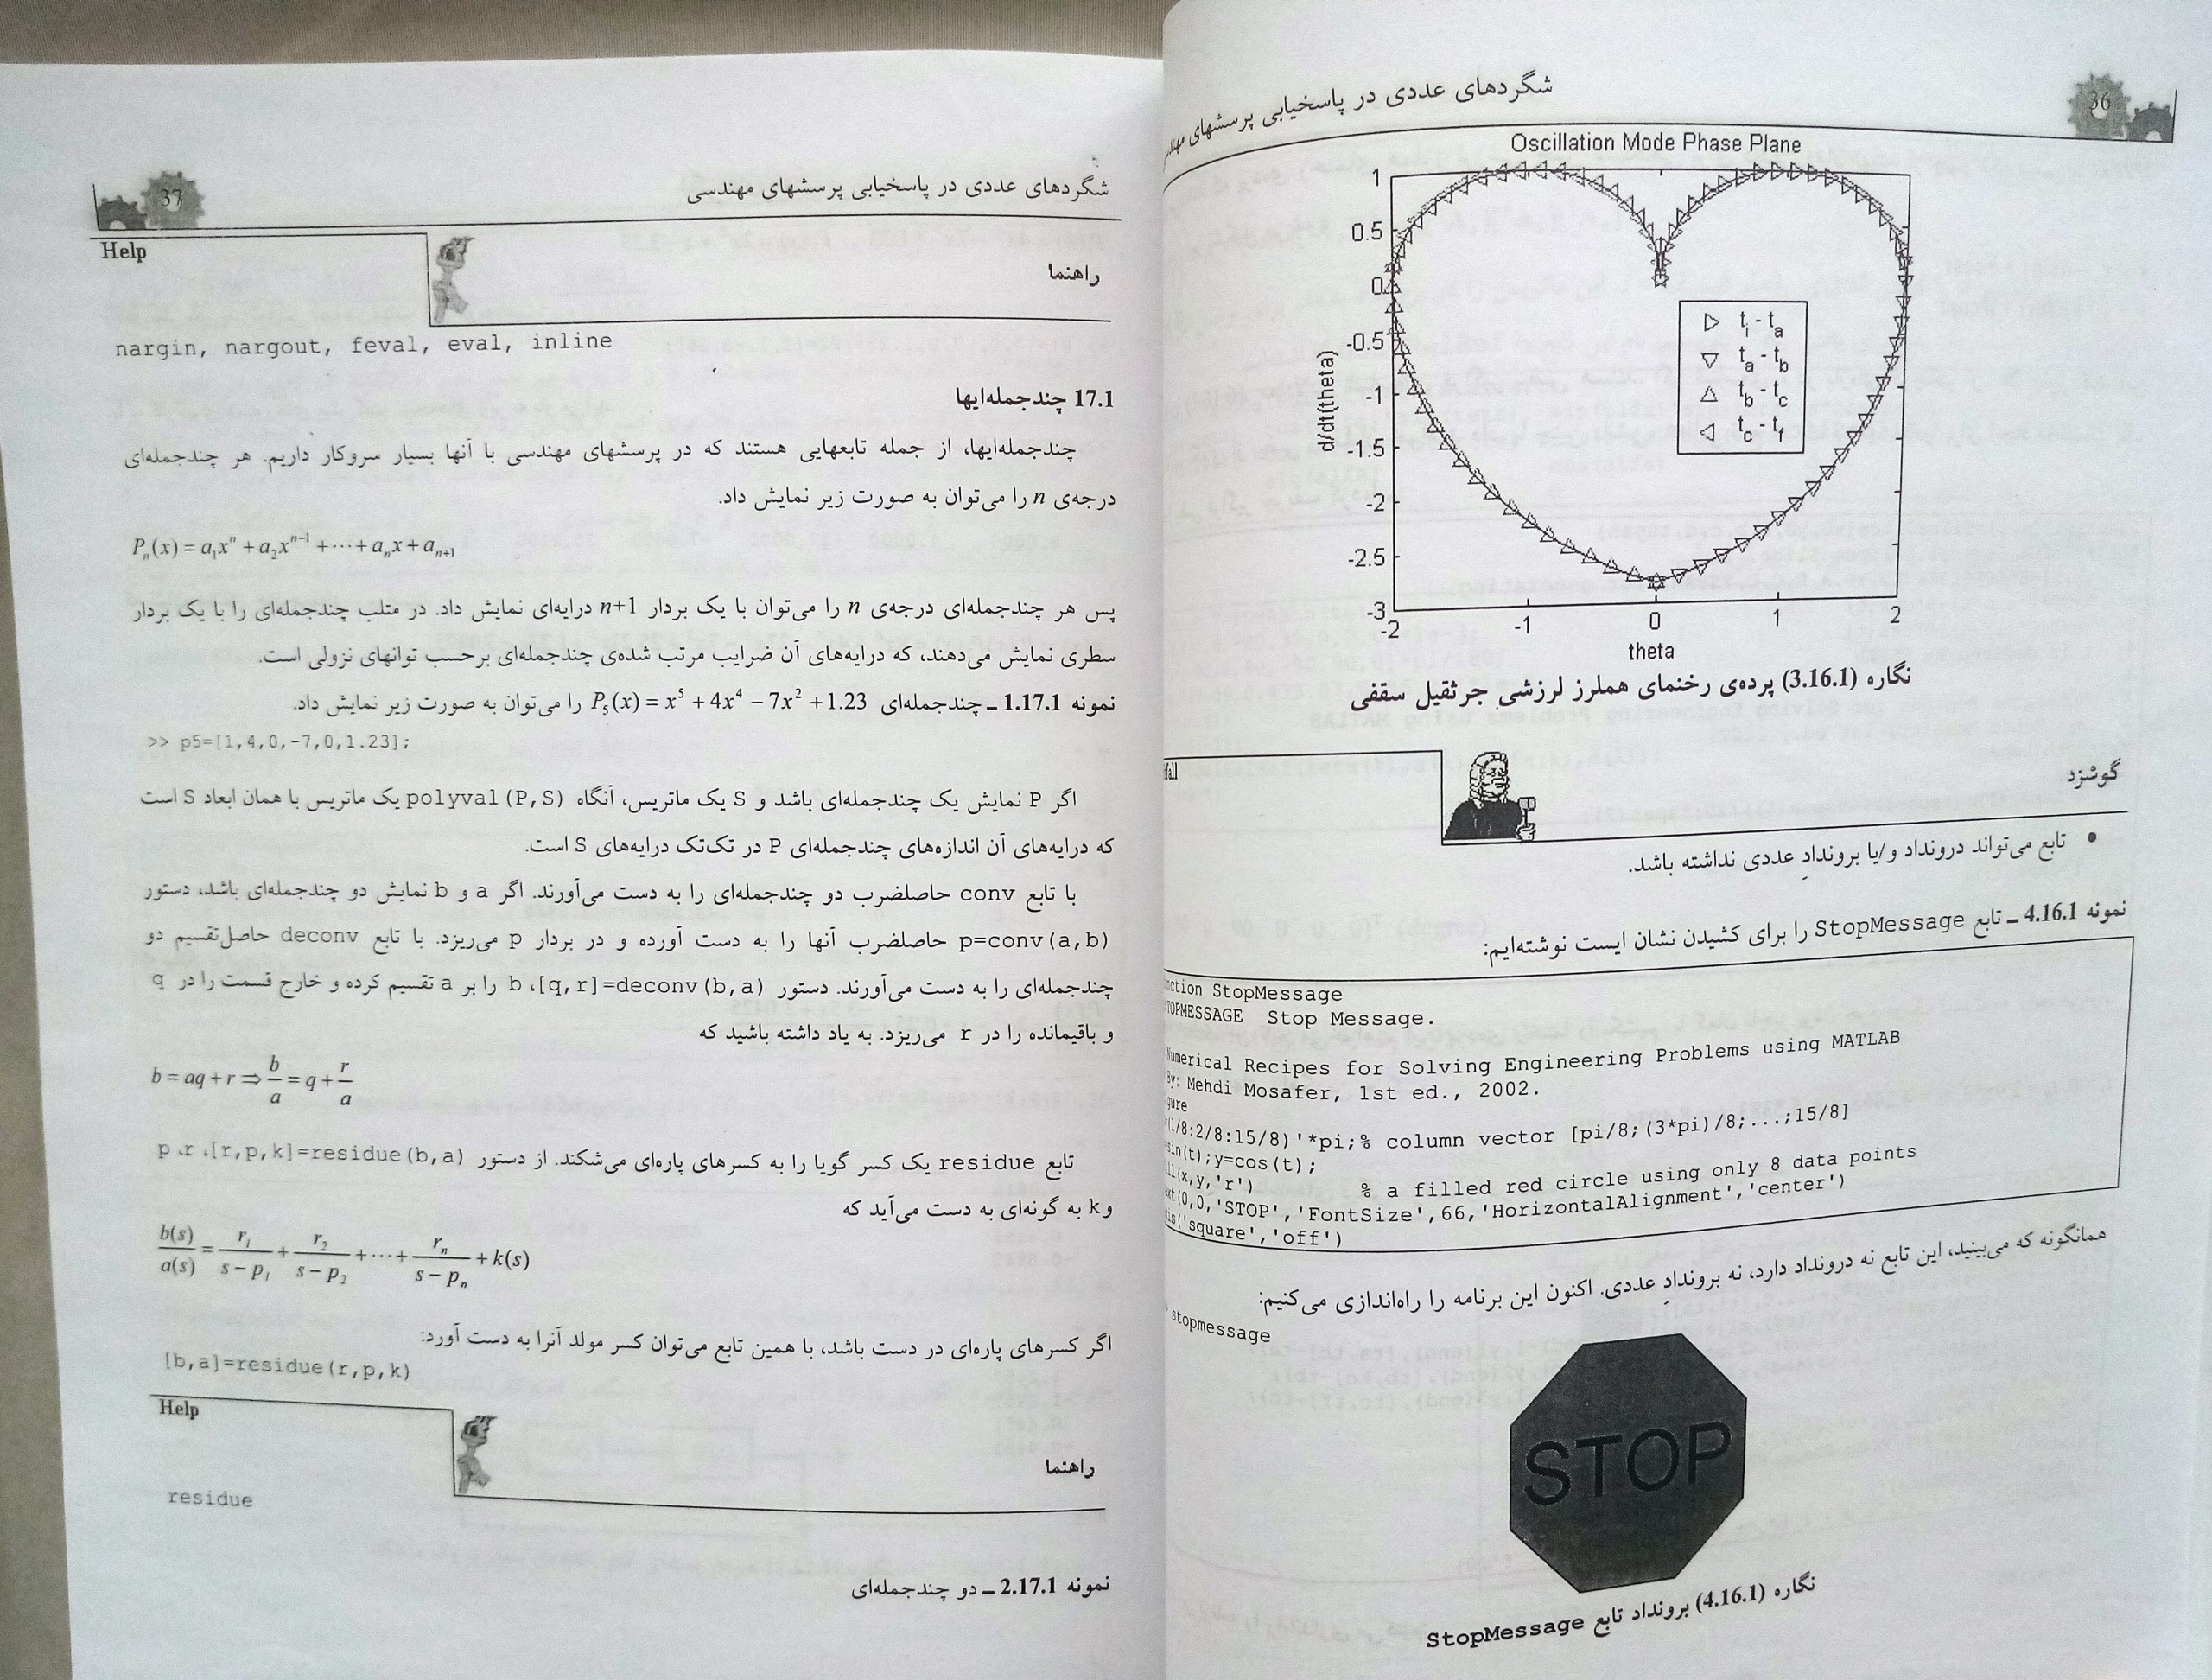 36
شگردهای عددی در پاسخیابی پرسشهای
Oscillation Mode Phase Plane
1
0.5
0
-0.5
-1
-1.5
-2
-2.5
-3
d/dt(theta)
t_i - t_a
t_a - t_b
t_b - t_c
t_c - t_f
-2 -1 0 1 2
theta
نگاره (3.16.1) پرده‌ی رخنمای هملرز لرزشی جرثقیل سقفی
گوشزد
• تابع می‌تواند درونداد و/یا بروندادِ عددی نداشته باشد.
نمونه 4.16.1 ـ تابع StopMessage را برای کشیدن نشان ایست نوشته‌ایم:
nction StopMessage
TOPMESSAGE Stop Message.
Numerical Recipes for Solving Engineering Problems using MATLAB
By: Mehdi Mosafer, 1st ed., 2002.
gure
(1/8:2/8:15/8)'*pi;% column vector [pi/8;(3*pi)/8;...;15/8]
sin(t);y=cos(t);
ll(x,y,'r') % a filled red circle using only 8 data points
xt(0,0,'STOP','FontSize',66,'HorizontalAlignment','center')
is('square','off')
همانگونه که می‌بینید، این تابع نه درونداد دارد، نه بروندادِ عددی. اکنون این برنامه را راه‌اندازی می‌کنیم:
stopmessage
STOP
نگاره (4.16.1) برونداد تابع StopMessage
37
شگردهای عددی در پاسخیابی پرسشهای مهندسی
Help
راهنما
nargin, nargout, feval, eval, inline
17.1 چندجمله‌ایها
چندجمله‌ایها، از جمله تابعهایی هستند که در پرسشهای مهندسی با آنها بسیار سروکار داریم. هر چندجمله‌ای
درجه‌ی n را می‌توان به صورت زیر نمایش داد.
P_n(x) = a_1x^n + a_2x^{n-1} + ⋯ + a_nx + a_{n+1}
پس هر چندجمله‌ای درجه‌ی n را می‌توان با یک بردار n+1 درایه‌ای نمایش داد. در متلب چندجمله‌ای را با یک بردار
سطری نمایش می‌دهند، که درایه‌های آن ضرایب مرتب شده‌ی چندجمله‌ای برحسب توانهای نزولی است.
نمونه 1.17.1 ـ چندجمله‌ای P_5(x) = x^5 + 4x^4 − 7x^2 + 1.23 را می‌توان به صورت زیر نمایش داد.
>> p5=[1,4,0,-7,0,1.23];
اگر P نمایش یک چندجمله‌ای باشد و S یک ماتریس، آنگاه polyval(P,S) یک ماتریس با همان ابعاد S است
که درایه‌های آن اندازه‌های چندجمله‌ای P در تک‌تک درایه‌های S است.
با تابع conv حاصلضرب دو چندجمله‌ای را به دست می‌آورند. اگر a و b نمایش دو چندجمله‌ای باشد، دستور
p=conv(a,b) حاصلضرب آنها را به دست آورده و در بردار p می‌ریزد. با تابع deconv حاصل‌تقسیم دو
چندجمله‌ای را به دست می‌آورند. دستور [q,r]=deconv(b,a)، b را بر a تقسیم کرده و خارج قسمت را در q
و باقیمانده را در r می‌ریزد. به یاد داشته باشید که
b = aq + r ⇒ b/a = q + r/a
تابع residue یک کسر گویا را به کسرهای پاره‌ای می‌شکند. از دستور [r,p,k]=residue(b,a)، r، p
و k به گونه‌ای به دست می‌آید که
b(s)/a(s) = r_1/(s − p_1) + r_2/(s − p_2) + ⋯ + r_n/(s − p_n) + k(s)
اگر کسرهای پاره‌ای در دست باشد، با همین تابع می‌توان کسر مولد آنرا به دست آورد:
[b,a]=residue(r,p,k)
Help
راهنما
residue
نمونه 2.17.1 ـ دو چندجمله‌ای